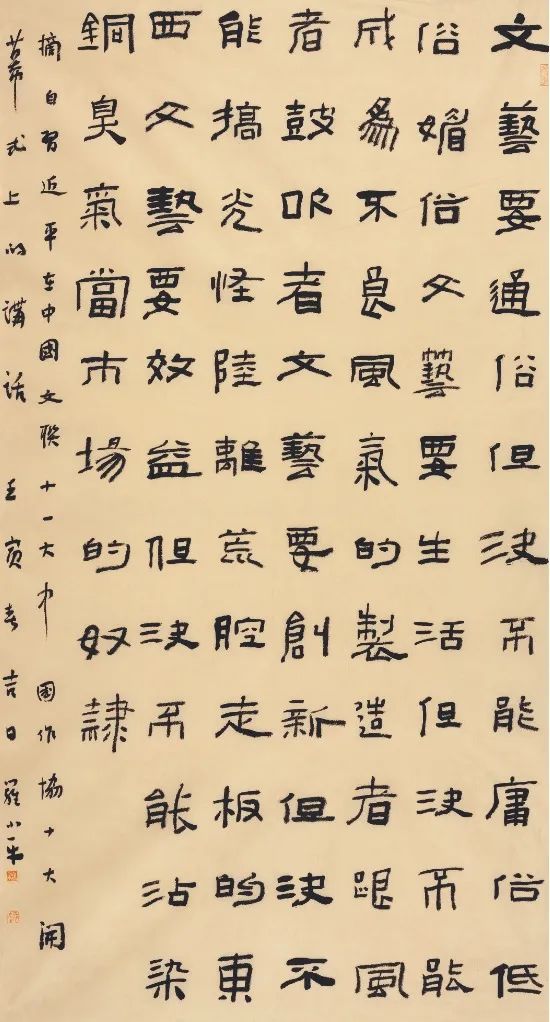 文藝要通俗但決不能庸俗低
俗媚俗文藝要生活但決不能
成爲不良風氣的製造者跟風
者鼓吹者文藝要創新但決不
能搞光怪陸離荒腔走板的東
西文藝要效益但決不能沾染
銅臭氣當市場的奴隸
摘自習近平在中國文聯十一大中國作協十大開
幕式上的講話 壬寅春吉日